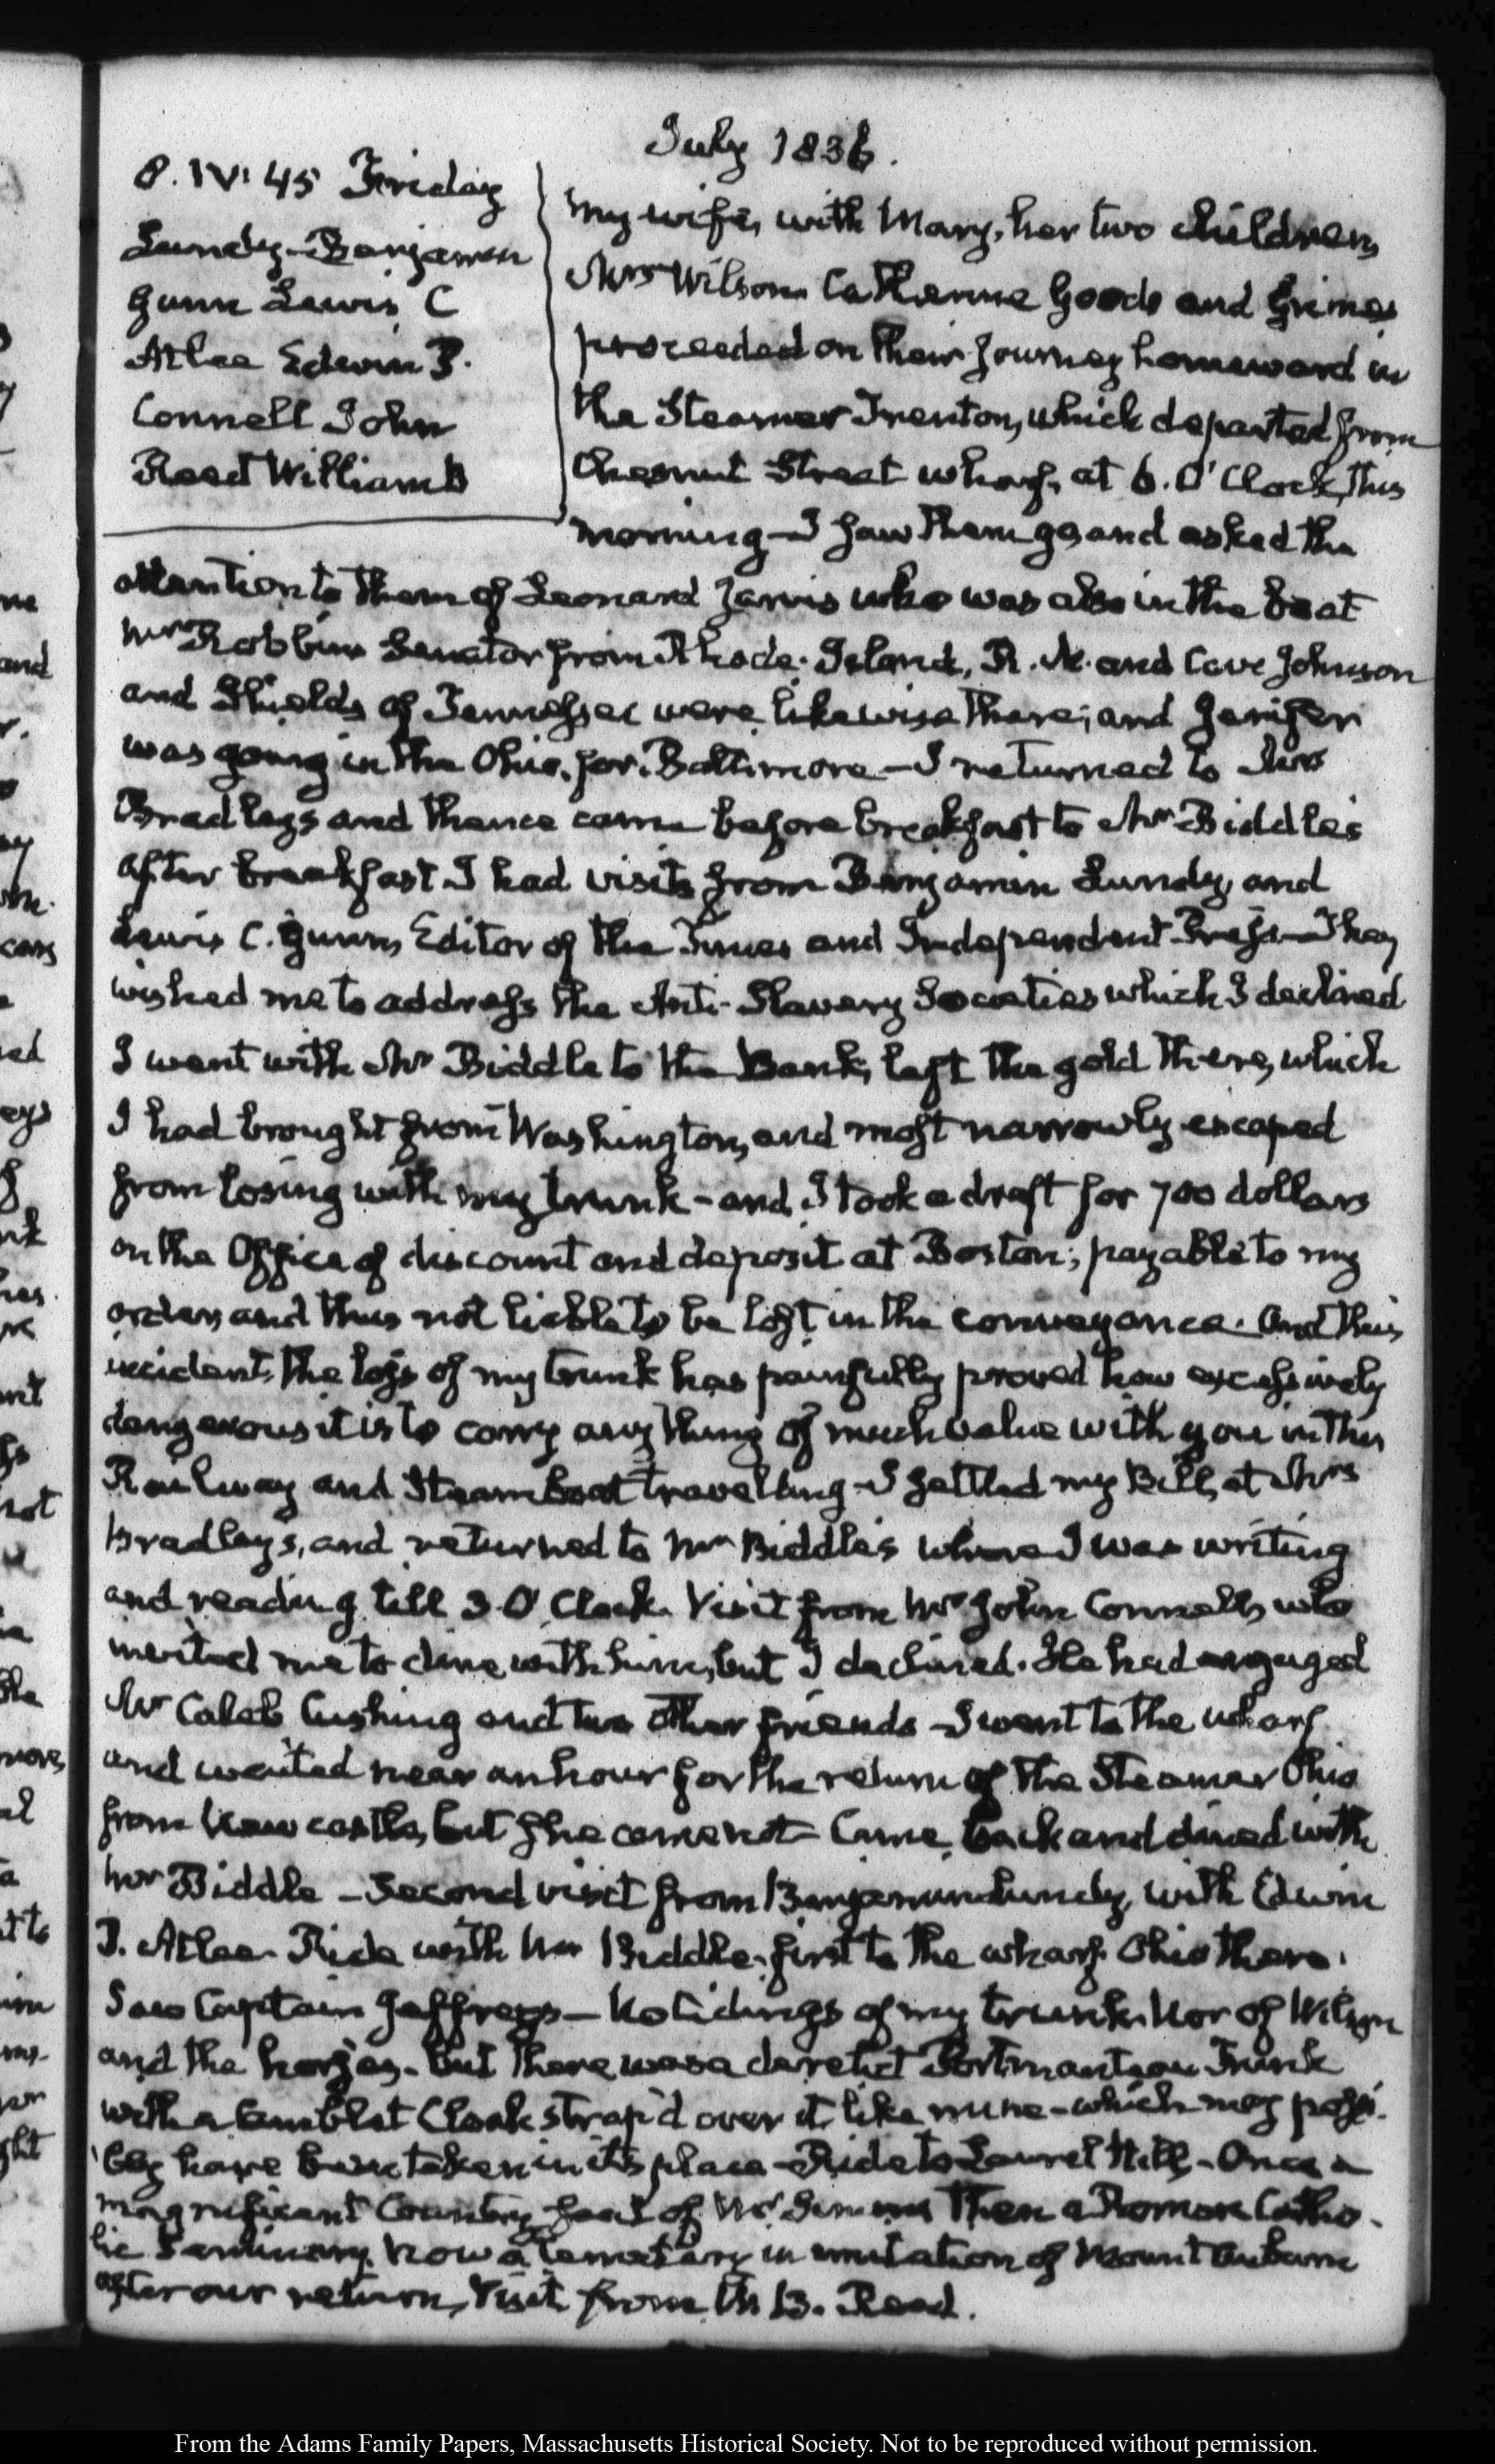 July 1836.
8. IV: 45 Friday
Lundy Benjamin
Gunn Lewis C
Atlee Edwin P.
Connell John
Reed William B
My wife, with Mary, her two children,
Mrs Wilson Catherine Goods and Grimes
proceeded on their journey homeward in
the Steamer Trenton, which departed from
Chesnut Street wharf, at 6. O'Clock, this
morning—I saw them go, and asked the
attention to them of Leonard Jarvis who was also in the boat
Mr Robbins Senator from Rhode-Island, R. M. and Cave Johnson
and Shields of Tennessee were likewise there; and Jenifer
was going in the Ohio, for Baltimore—I returned to Mrs
Bradleys and thence came before breakfast to Mr Biddle's
After breakfast I had visits from Benjamin Lundy, and
Lewis C. Gunn, Editor of the Times and Independent Press—They
wished me to address the Anti-Slavery Societies which I declined
I went with Mr Biddle to the Bank, left the gold there, which
I had brought from Washington, and most narrowly escaped
from losing with my trunk—and I took a draft for 700 dollars
on the Office of discount and deposit at Boston; payable to my
order, and thus not liable to be lost in the conveyance. And this
incident, the loss of my trunk has painfully proved how excessively
dangerous it is to carry any thing of much value with you in this
Railway and Steamboat travelling—I settled my Bill, at Mrs
Bradleys, and returned to Mr Biddle's where I was writing
and reading till 3 O'Clock. Visit from Mr John Connell, who
invited me to dine with him, but I declined. He had engaged
Mr Caleb Cushing and two other friends—I went to the wharf
and waited near an hour for the return of the Steamer Ohio
from New castle, but she came not—Came back and dined with
Mr Biddle—Second visit from Benjamin Lundy, with Edwin
P. Atlee. Ride with Mr Biddle, first to the wharf. Ohio there.
Saw Captain Jeffreys—No tidings of my trunk. Nor of Wilson
and the horses. But there was a derelict Portmanteau Trunk
with a Camblet Cloak strap'd over it, like mine—which may possi-
bly have been taken in its place—Ride to Laurel Hill—Once a
magnificent Country seat of Mr Simms Then a Roman Catho-
lic Seminary. Now a Cemetary in imitation of Mount Auburn
After our return, Visit from W B. Read.
From the Adams Family Papers, Massachusetts Historical Society. Not to be reproduced without permission.